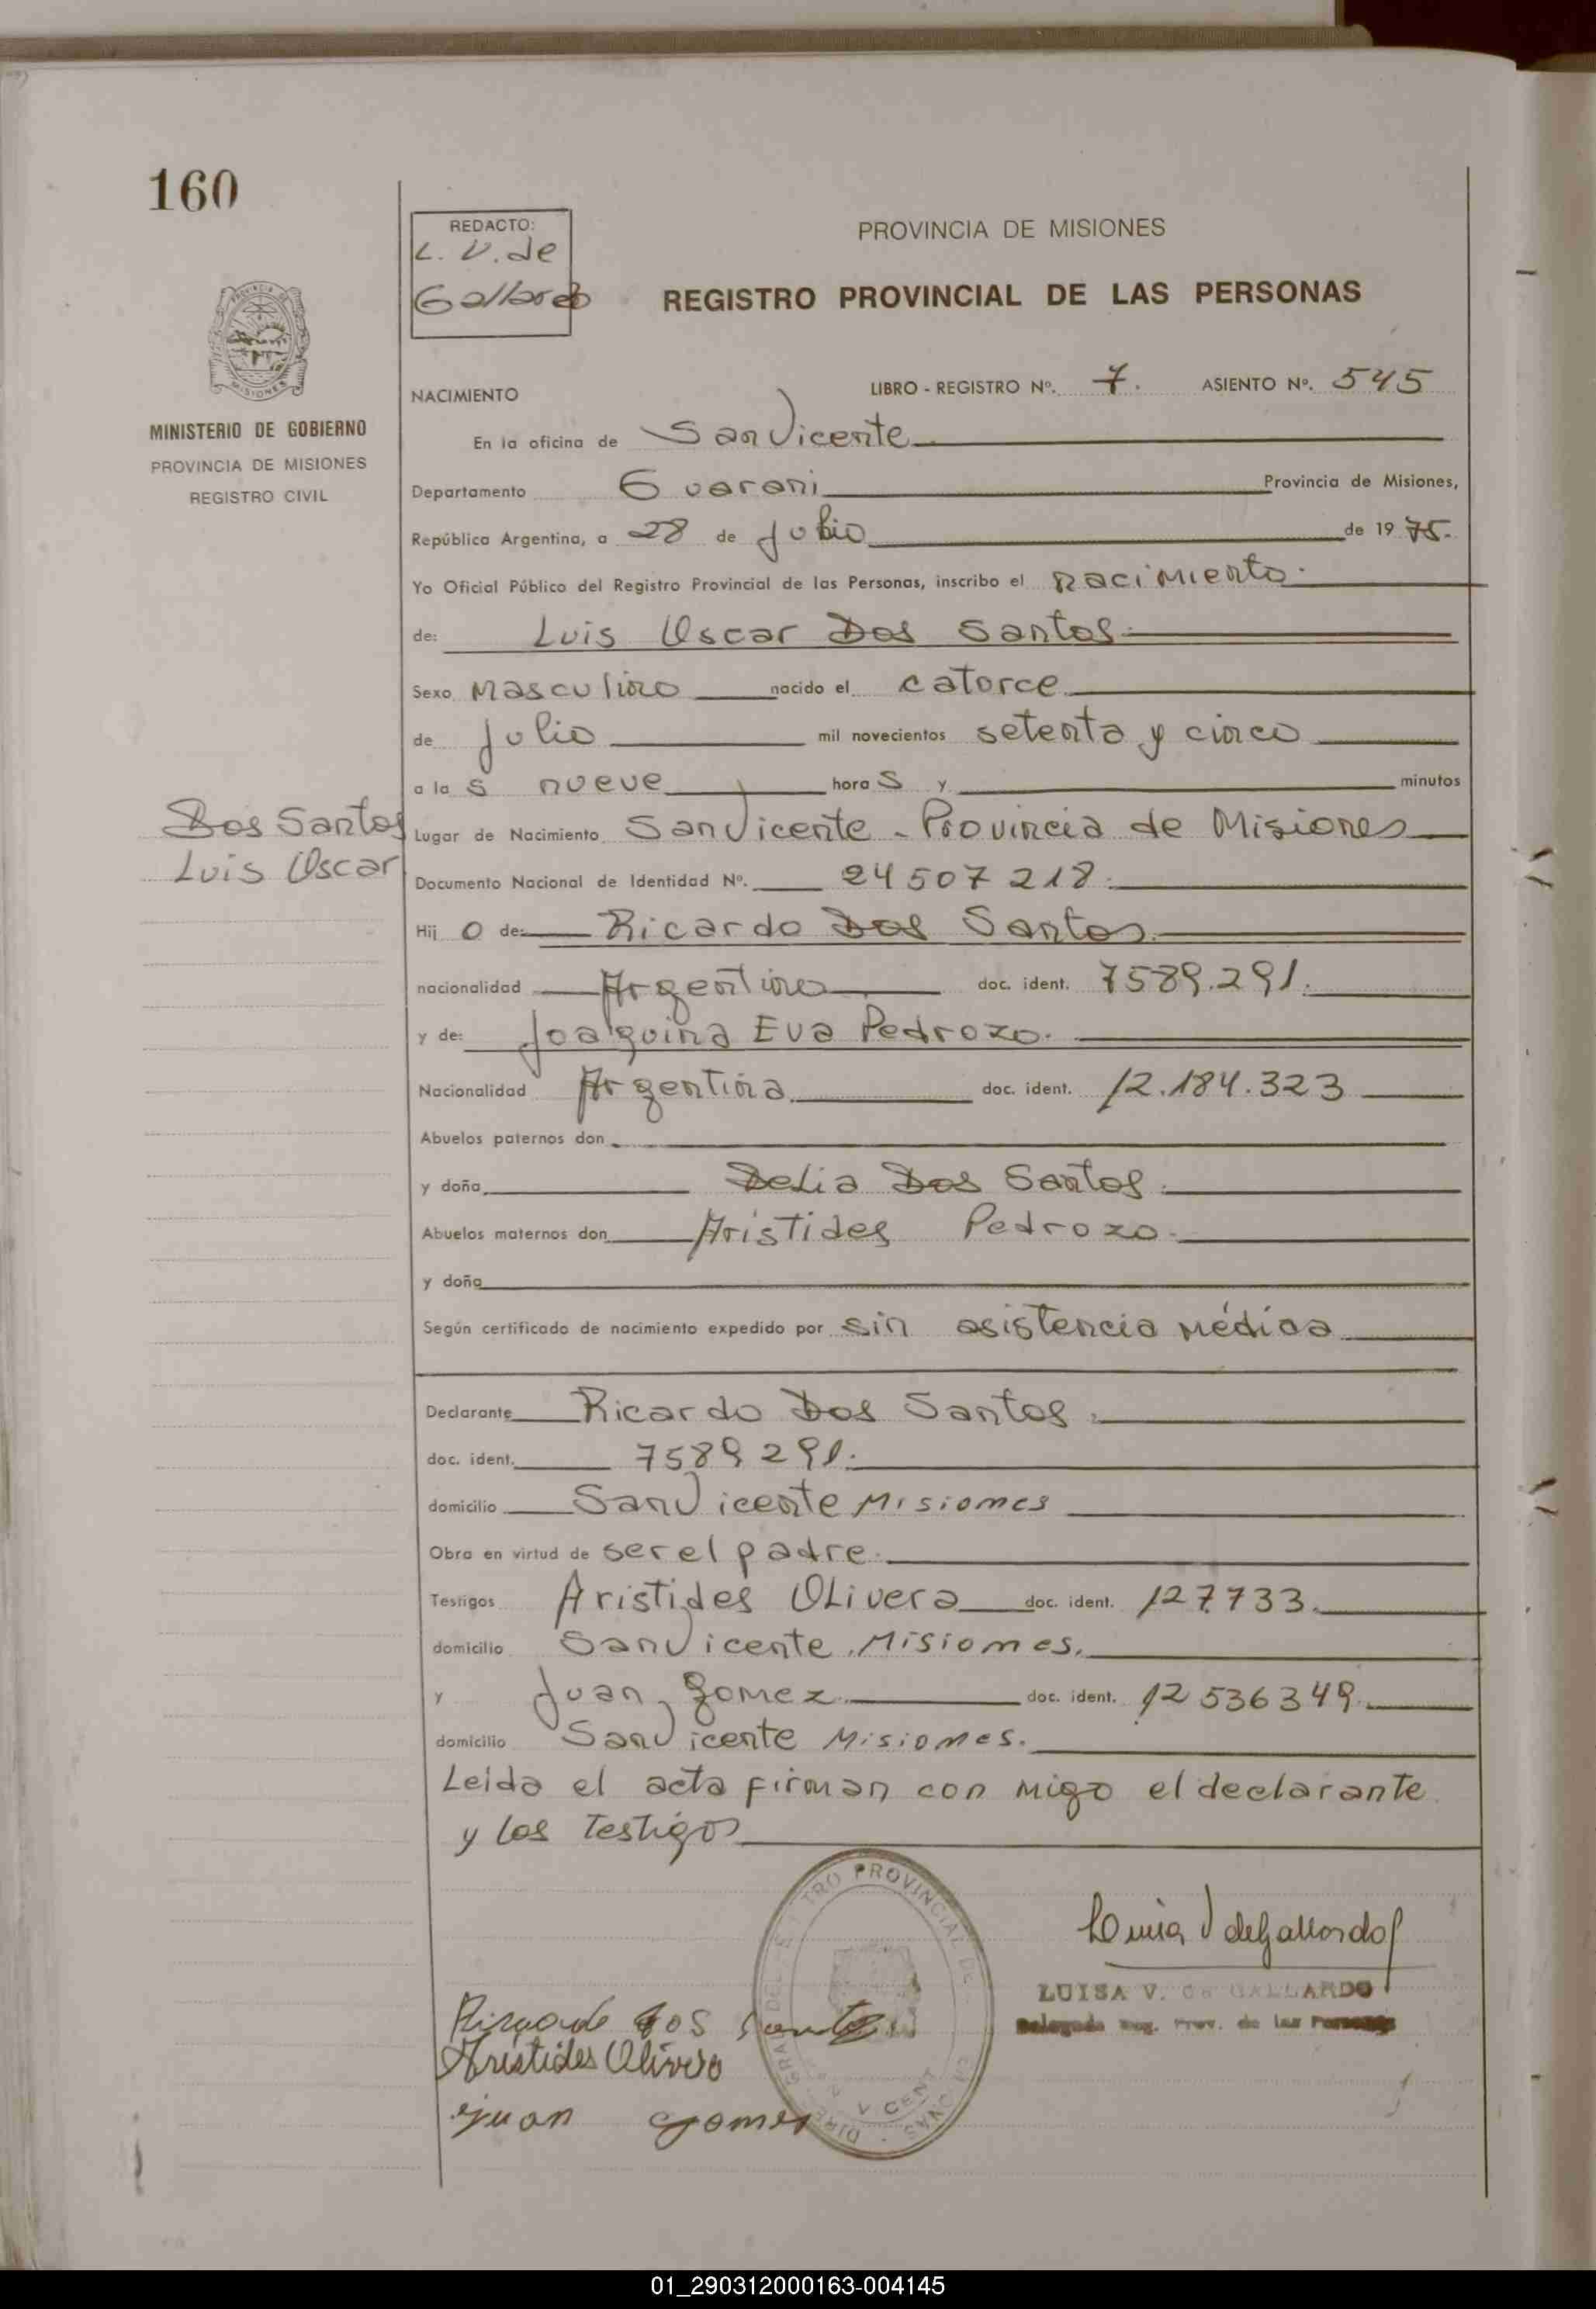 160
REDACTO:
L. V. de
Gallardo
PROVINCIA DE MISIONES
REGISTRO PROVINCIAL DE LAS PERSONAS
MINISTERIO DE GOBIERNO
PROVINCIA DE MISIONES
REGISTRO CIVIL
NACIMIENTO LIBRO - REGISTRO Nº. 7. ASIENTO Nº. 545
En la oficina de San Vicente
Departamento Guarani Provincia de Misiones,
República Argentina, a 28 de Julio de 19 75.
Yo Oficial Público del Registro Provincial de las Personas, inscribo el nacimiento.
de: Luis Oscar Dos Santos
Sexo Masculino nacido el catorce
de Julio mil novecientos setenta y cinco
a la s nueve hora s y minutos
Dos Santos
Luis Oscar
Lugar de Nacimiento San Vicente - Provincia de Misiones
Documento Nacional de Identidad Nº. 24507218.
Hij o de: Ricardo Dos Santos
nacionalidad Argentino doc. ident. 7589.291.
y de: Joaquina Eva Pedrozo.
Nacionalidad Argentina doc. ident. 12.184.323
Abuelos paternos don
y doña Delia Dos Santos.
Abuelos maternos don Aristides Pedrozo.
y doña
Según certificado de nacimiento expedido por sin asistencia médica
Declarante Ricardo Dos Santos.
doc. ident. 7589291.
domicilio San Vicente Misiones
Obra en virtud de ser el padre.
Testigos Aristides Olivera doc. ident. 127.733.
domicilio San Vicente, Misiones.
y Juan Gomez doc. ident. 12536349.
domicilio San Vicente Misiones.
Leida el acta firman con migo el declarante
y los testigos
Luisa V de Gallardo
LUISA V. de GALLARDO
Delegada Reg. Prov. de las Personas
Ricardo dos Santos
Aristides Olivera
Juan Gomes
01_290312000163-004145